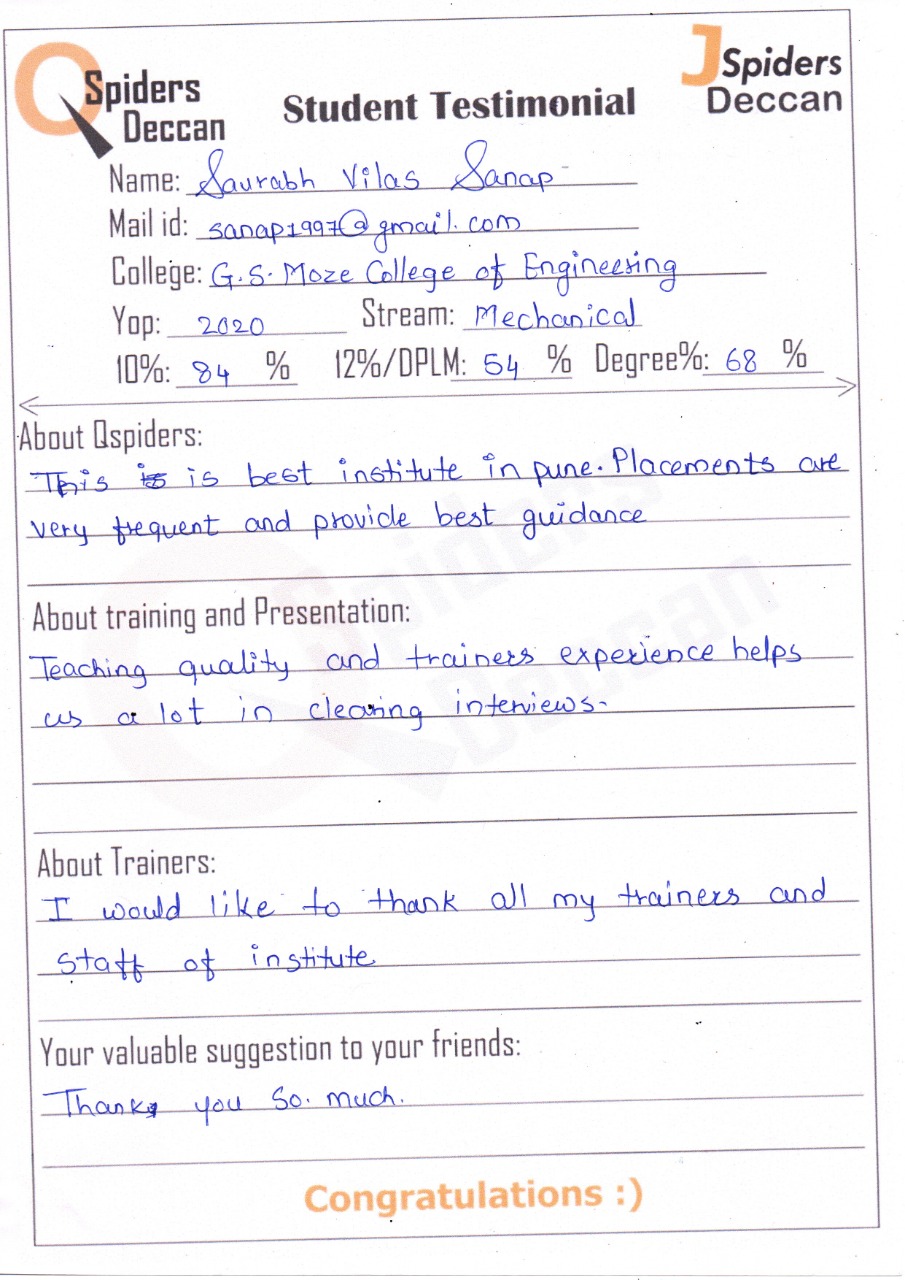 QSpiders
Deccan
Student Testimonial
JSpiders
Deccan
Name: Saurabh Vilas Sanap
Mail id: sanap1997@gmail.com
College: G.S. Moze College of Engineering
Yop: 2020 Stream: Mechanical
10%: 84 % 12%/DPLM: 54 % Degree%: 68 %
About Qspiders:
This is is best institute in pune. Placements are
very frequent and provide best guidance
About training and Presentation:
Teaching quality and trainers experience helps
us a lot in clearing interviews.
About Trainers:
I would like to thank all my trainers and
staff of institute
Your valuable suggestion to your friends:
Thank you so. much.
Congratulations :)
QSpiders
Deccan